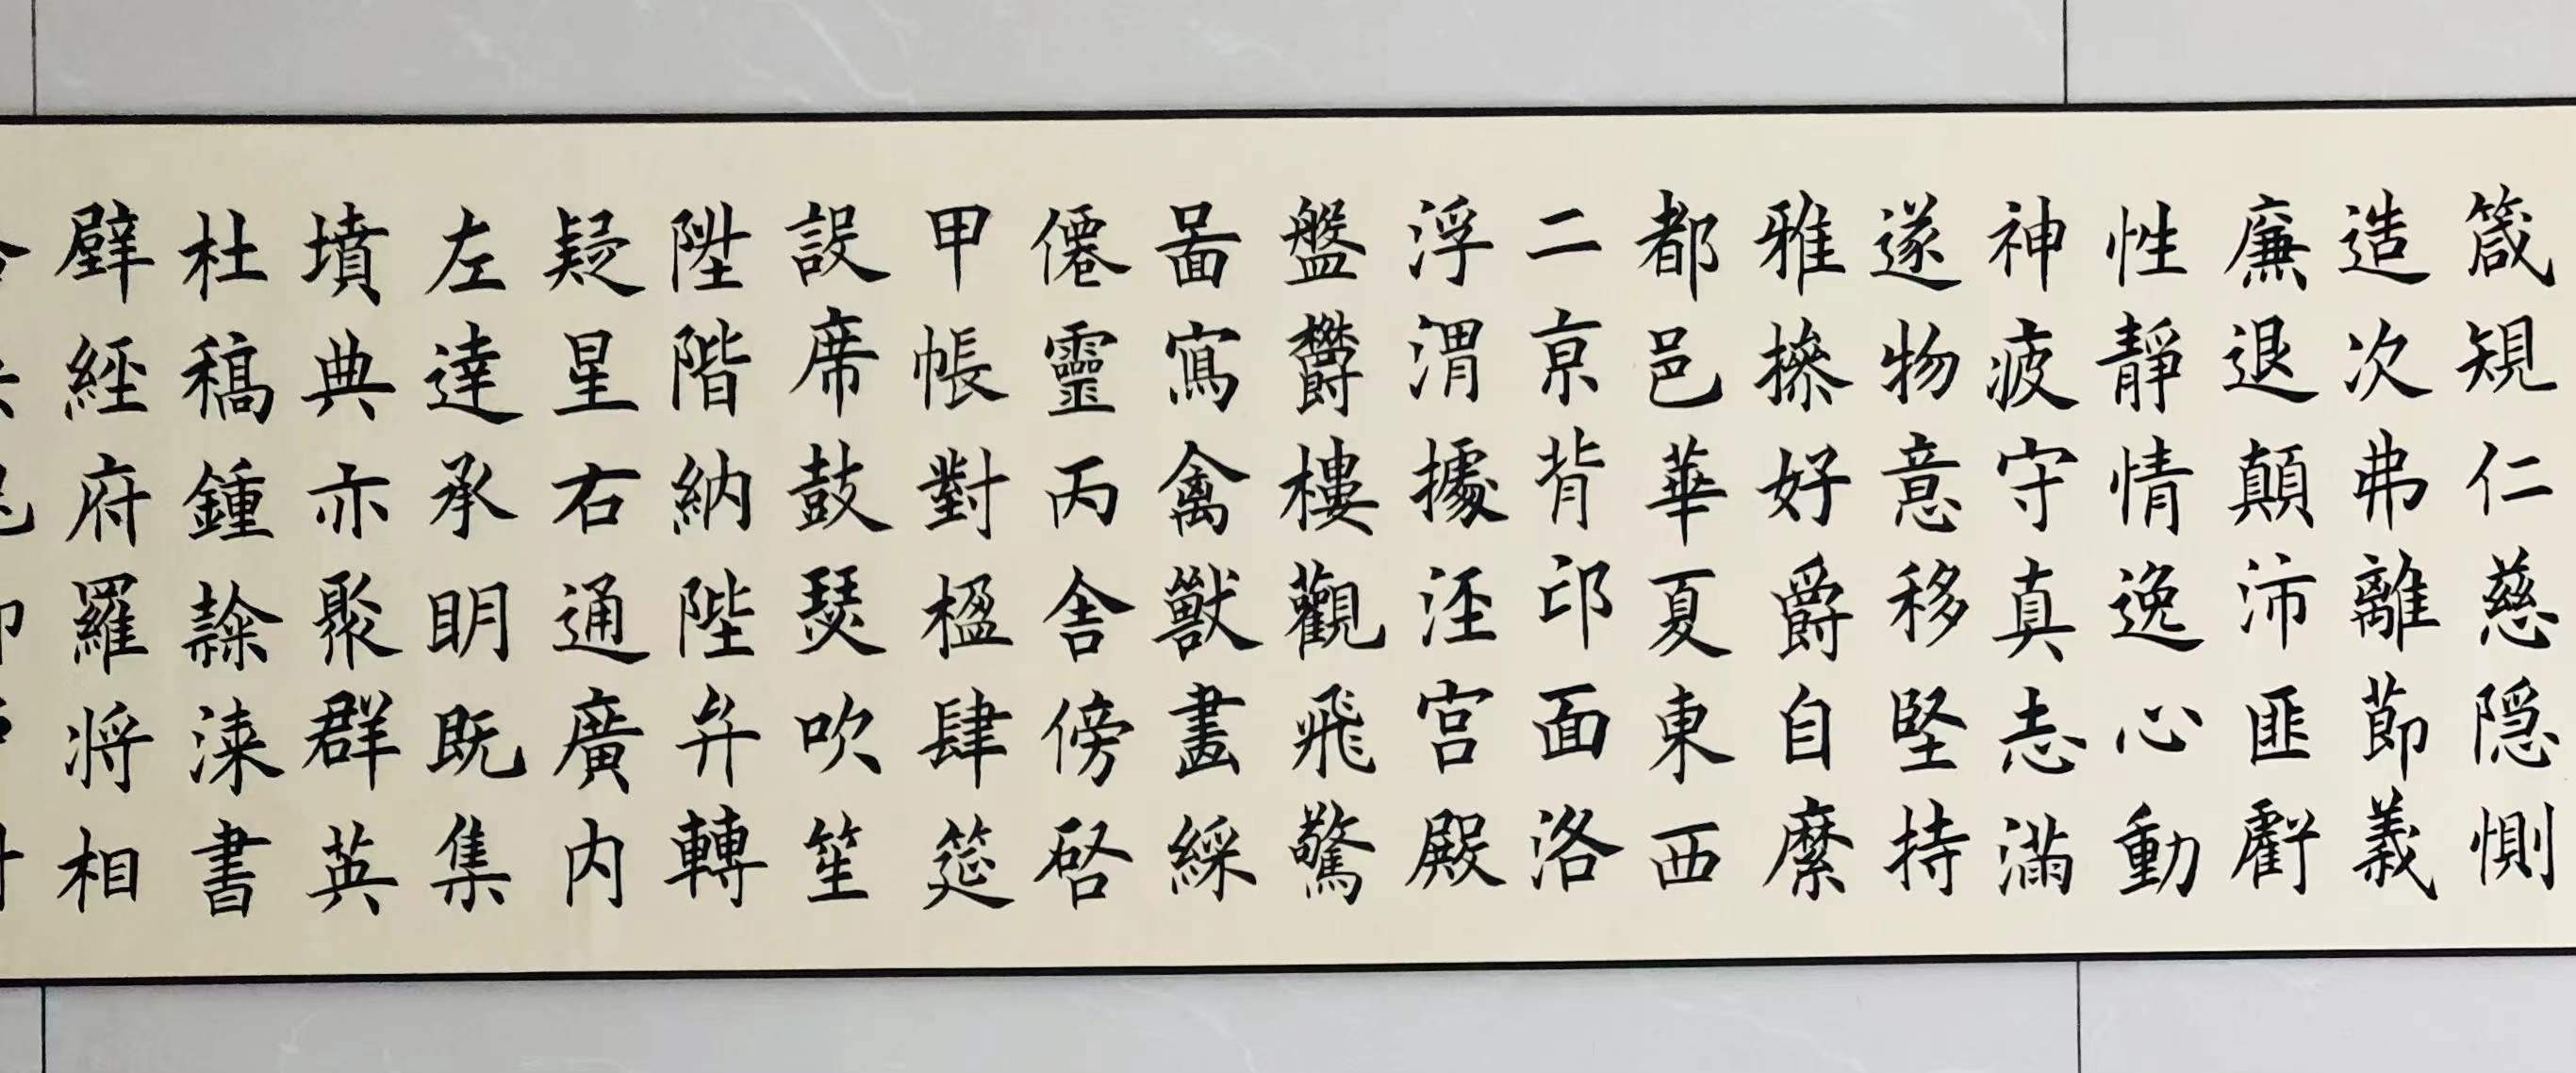 箴規仁慈隱惻
造次弗離節義
廉退顛沛匪虧
性靜情逸心動
神疲守真志滿
遂物意移堅持
雅操好爵自縻
都邑華夏東西
二京背邙面洛
浮渭據涇宮殿
盤鬱樓觀飛驚
啚寫禽獸畫綵
僊靈丙舍傍啓
甲帳對楹肆筵
設席鼓瑟吹笙
陞階納陛弁轉
疑星右通廣内
左達承明既集
墳典亦聚群英
杜稿鍾隸漆書
壁經府羅將相